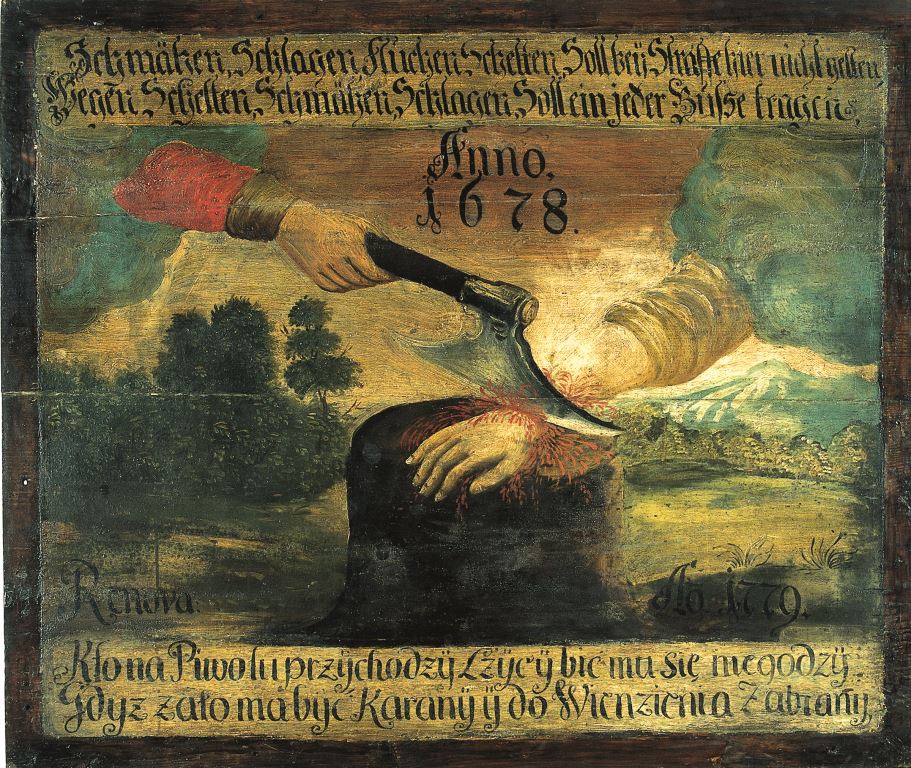 Schmähen, Schlagen, Fluchen, Schelten, Soll bey Straffe hier nicht gelten,
Wegen Schelten, Schmähen, Schlagen, Soll ein jeder Busse tragen,
Anno,
1678.
Renova:
Ao. 1779.
Kto na Piwo tu przÿchodzÿ Lżÿc ÿ bić mu się niegodzÿ:
Gdyż zato ma być Karanÿ ÿ do Wienzienia Zabranÿ,